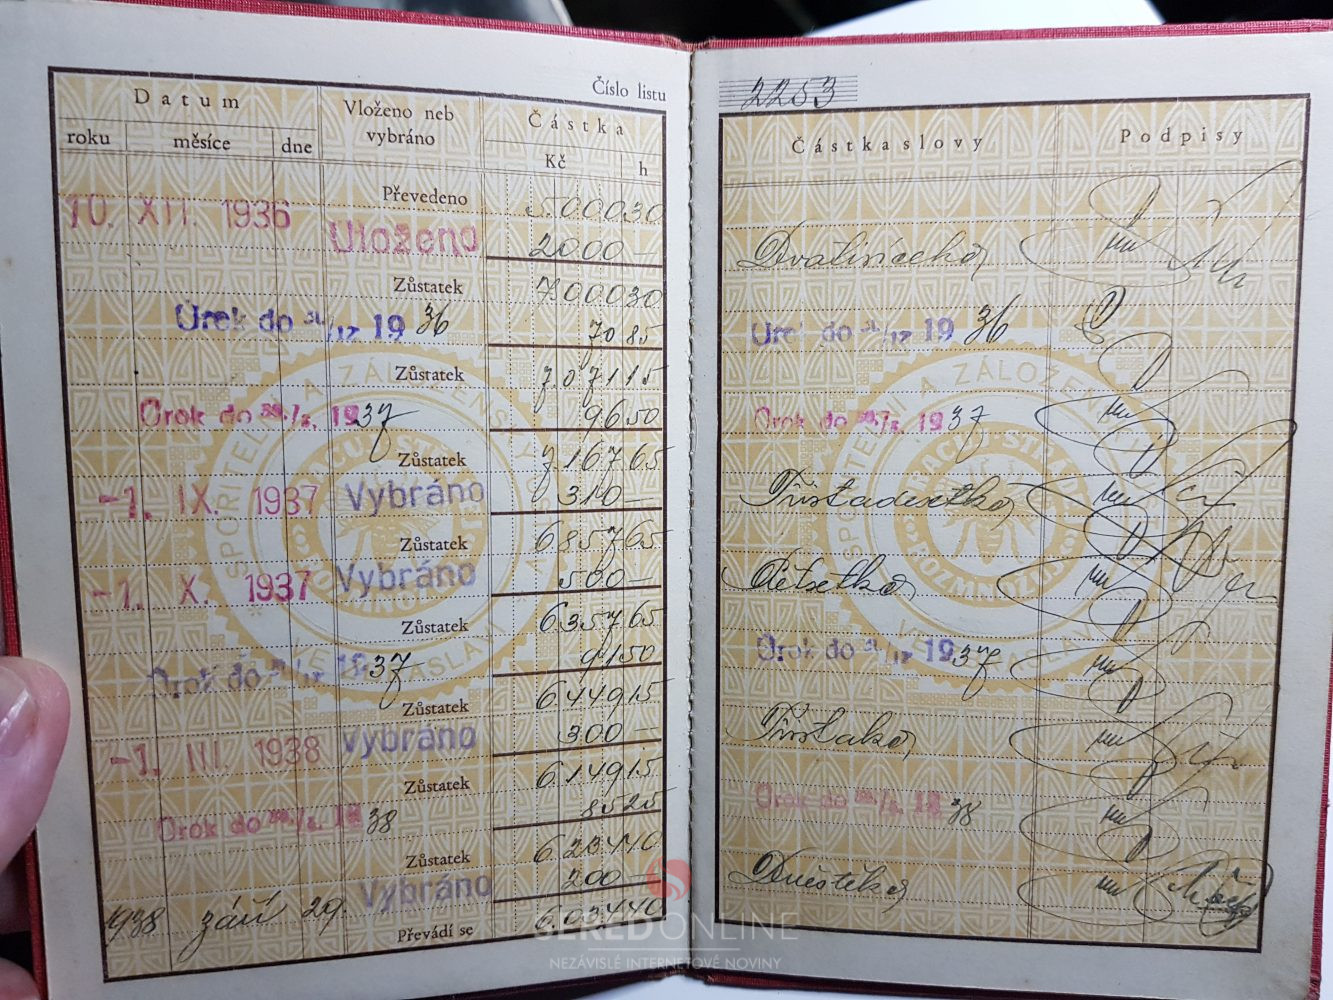 Číslo listu
2253
Datum
Vloženo neb vybráno
Částka
roku měsíce dne
Kč h
Částka slovy
Podpisy
Převedeno 5000 30
10. XII. 1936 Uloženo 2000 —
Dvatisícekč
Zůstatek 7000 30
Úrok do 31/12 19 36 70 85
Úrok do 31/12 19 36
Zůstatek 7071 15
Úrok do 30./6. 1937 96 50
Úrok do 30./6. 1937
Zůstatek 7167 65
-1. IX. 1937 Vybráno 310 —
Třistadesetkč
Zůstatek 6857 65
-1. X. 1937 Vybráno 500 —
Pětsetkč
Zůstatek 6357 65
Úrok do 31/12 1937 91 50
Úrok do 31/12 1937
Zůstatek 6449 15
-1. III. 1938 Vybráno 300 —
Třistakč
Zůstatek 6149 15
Úrok do 30./6. 1938 85 25
Úrok do 30./6. 1938
Zůstatek 6234 40
1938 září 29. Vybráno 200 —
Dvěstěkč
Převádí se 6034 40
SPOŘITELNÍ A ZÁLOŽENSKÝ
SPOŘITELNÍ A ZÁLOŽENSKÝ
SEREDONLINE
NEZÁVISLÉ INTERNETOVÉ NOVINY